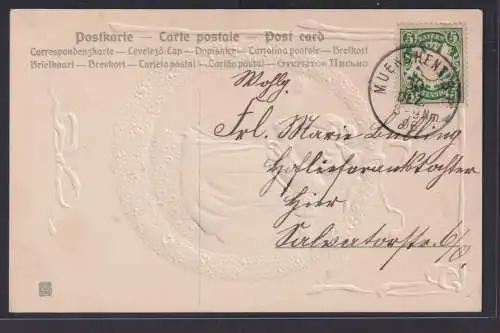 Postkarte – Carte postale – Post card
Correspondenzkarte – Levelező-Lap – Dopisnice – Cartolina postale – Brefkort
Briefkaart – Brevkort – Tarjeta postal – Cartão postal – Открытое Письмо
BAYERN
5 5
PFENNIG
MUENCHEN
Nm
Wohlg.
Frl. Marie
Hoflieferantstochter
Hier
Salvatorstr.